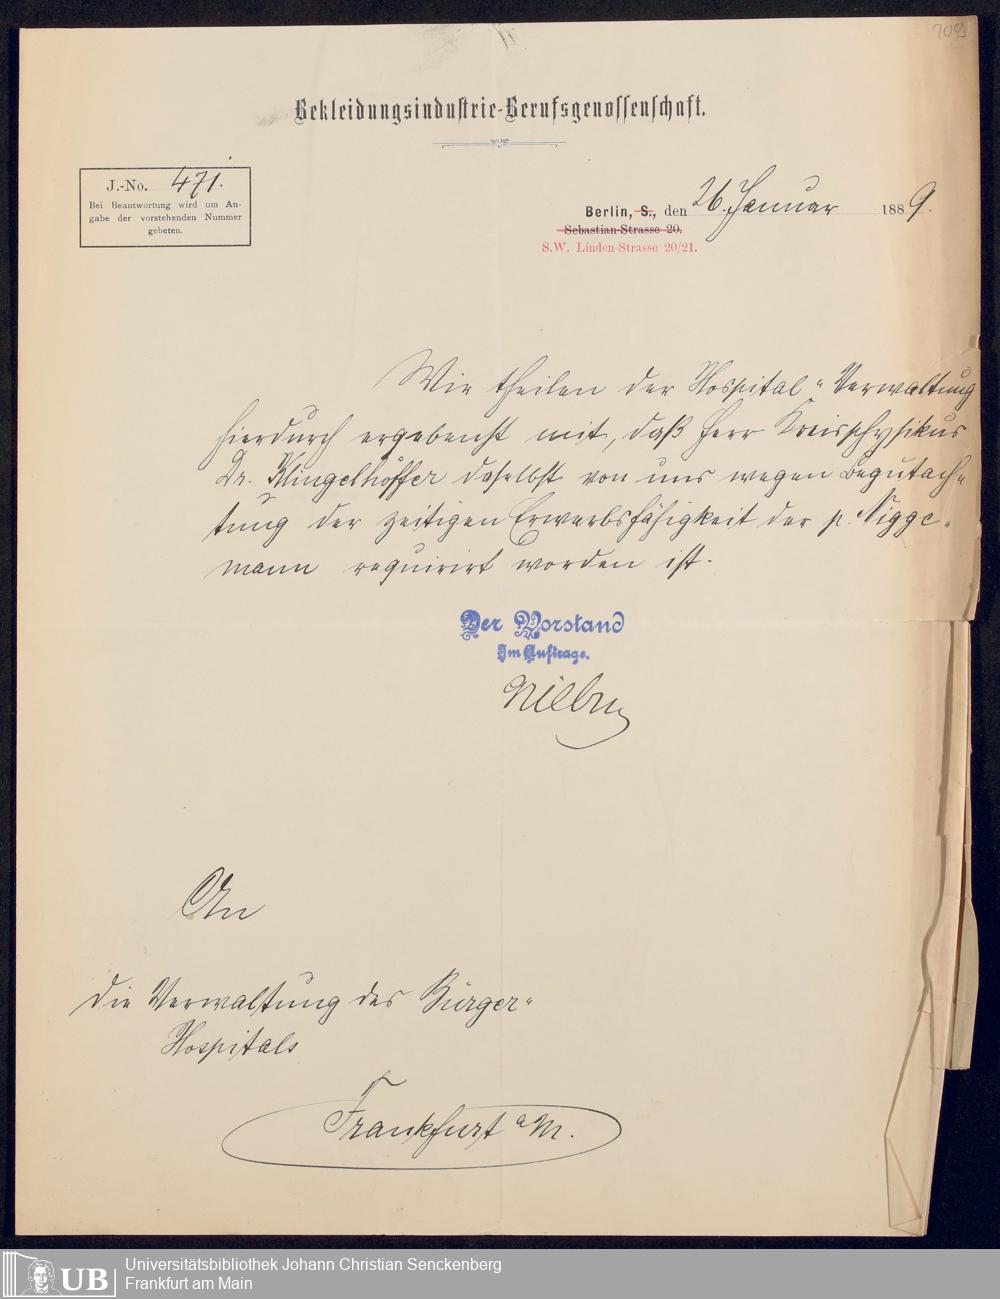 709
Bekleidungsindustrie-Berufsgenossenschaft.
J.-No. 471.
Bei Beantwortung wird um An-
gabe der vorstehenden Nummer
gebeten.
Berlin, S., den 26. Januar 1889.
Sebastian-Strasse 20.
S.W. Linden-Strasse 20/21.
Wir theilen der Hospital-Verwaltung
hierdurch ergebenst mit, daß Herr Kreisphysikus
Dr. Klingelhöffer daselbst von uns wegen Begutach-
tung der zeitigen Erwerbsfähigkeit der p. Nigge-
mann requirirt worden ist.
Der Vorstand
Im Auftrage.
An
die Verwaltung des Bürger-
Hospitals
Frankfurt a/M.
UB
Universitätsbibliothek Johann Christian Senckenberg
Frankfurt am Main